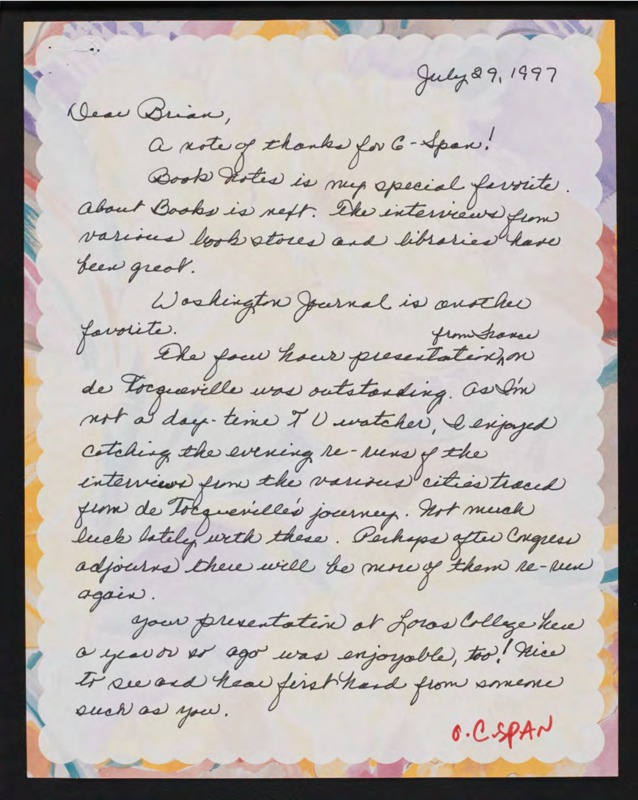 July 29, 1997
Dear Brian,
A note of thanks for C-Span!
Book Notes is my special favorite.
About Books is next. The interviews from
various book stores and libraries have
been great.
Washington Journal is another
favorite.
from France
The four hour presentation, on
de Tocqueville was outstanding. As I'm
not a day-time TV watcher, I enjoyed
catching the evening re-runs of the
interviews from the various cities traced
from de Tocqueville's journey. Not much
luck lately with these. Perhaps after Congress
adjourns there will be more of them re-run
again.
Your presentation at Loras College here
a year or so ago was enjoyable, too! Nice
to see and hear first hand from someone
such as you.
O.C.SPAN